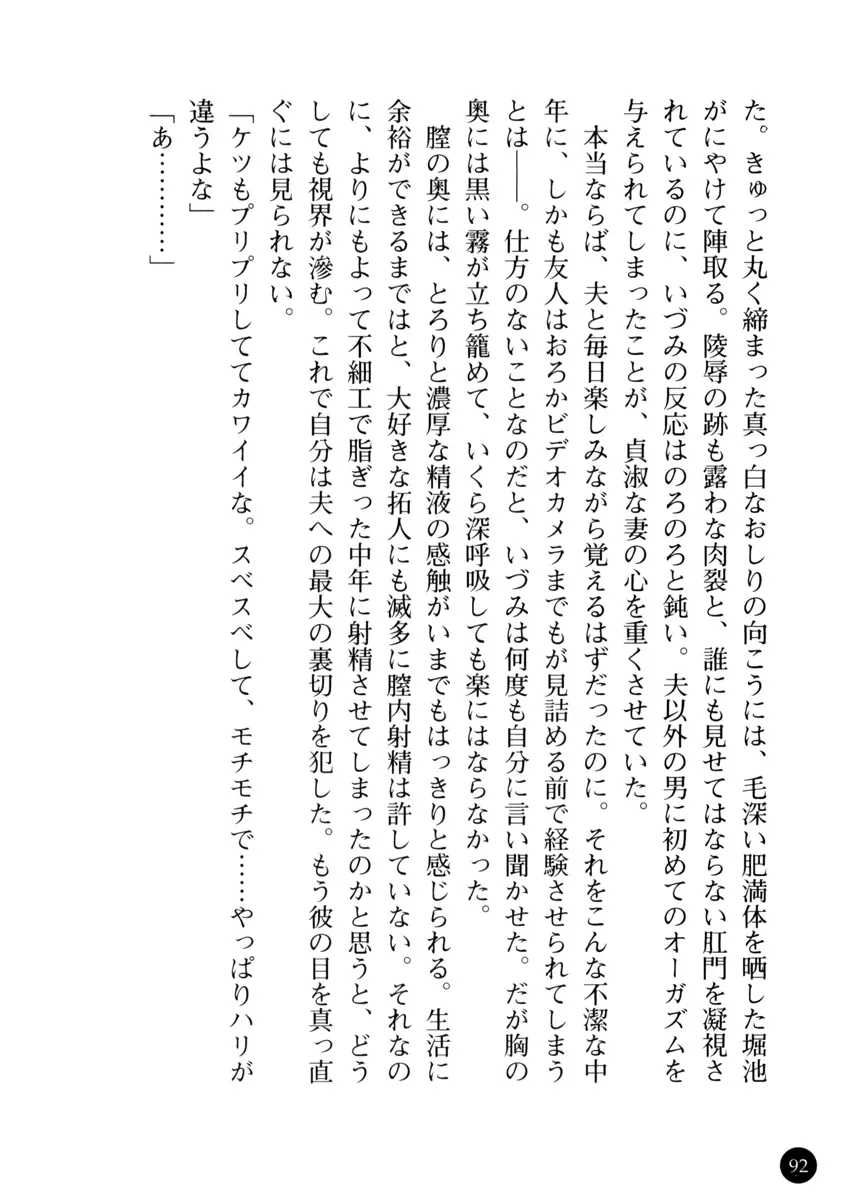 た。きゅっと丸く締まった真っ白なおしりの向こうには、毛深い肥満体を晒した堀池
がにやけて陣取る。陵辱の跡も露わな肉裂と、誰にも見せてはならない肛門を凝視さ
れているのに、いづみの反応はのろのろと鈍い。夫以外の男に初めてのオーガズムを
与えられてしまったことが、貞淑な妻の心を重くさせていた。
　本当ならば、夫と毎日楽しみながら覚えるはずだったのに。それをこんな不潔な中
年に、しかも友人はおろかビデオカメラまでもが見詰める前で経験させられてしまう
とは――。仕方のないことなのだと、いづみは何度も自分に言い聞かせた。だが胸の
奥には黒い霧が立ち籠めて、いくら深呼吸しても楽にはならなかった。
　膣の奥には、とろりと濃厚な精液の感触がいまでもはっきりと感じられる。生活に
余裕ができるまではと、大好きな拓人にも滅多に膣内射精は許していない。それなの
に、よりにもよって不細工で脂ぎった中年に射精させてしまったのかと思うと、どう
しても視界が滲む。これで自分は夫への最大の裏切りを犯した。もう彼の目を真っ直
ぐには見られない。
「ケツもプリプリしててカワイイな。スベスベして、モチモチで……やっぱりハリが
違うよな」
「あ…………」
92